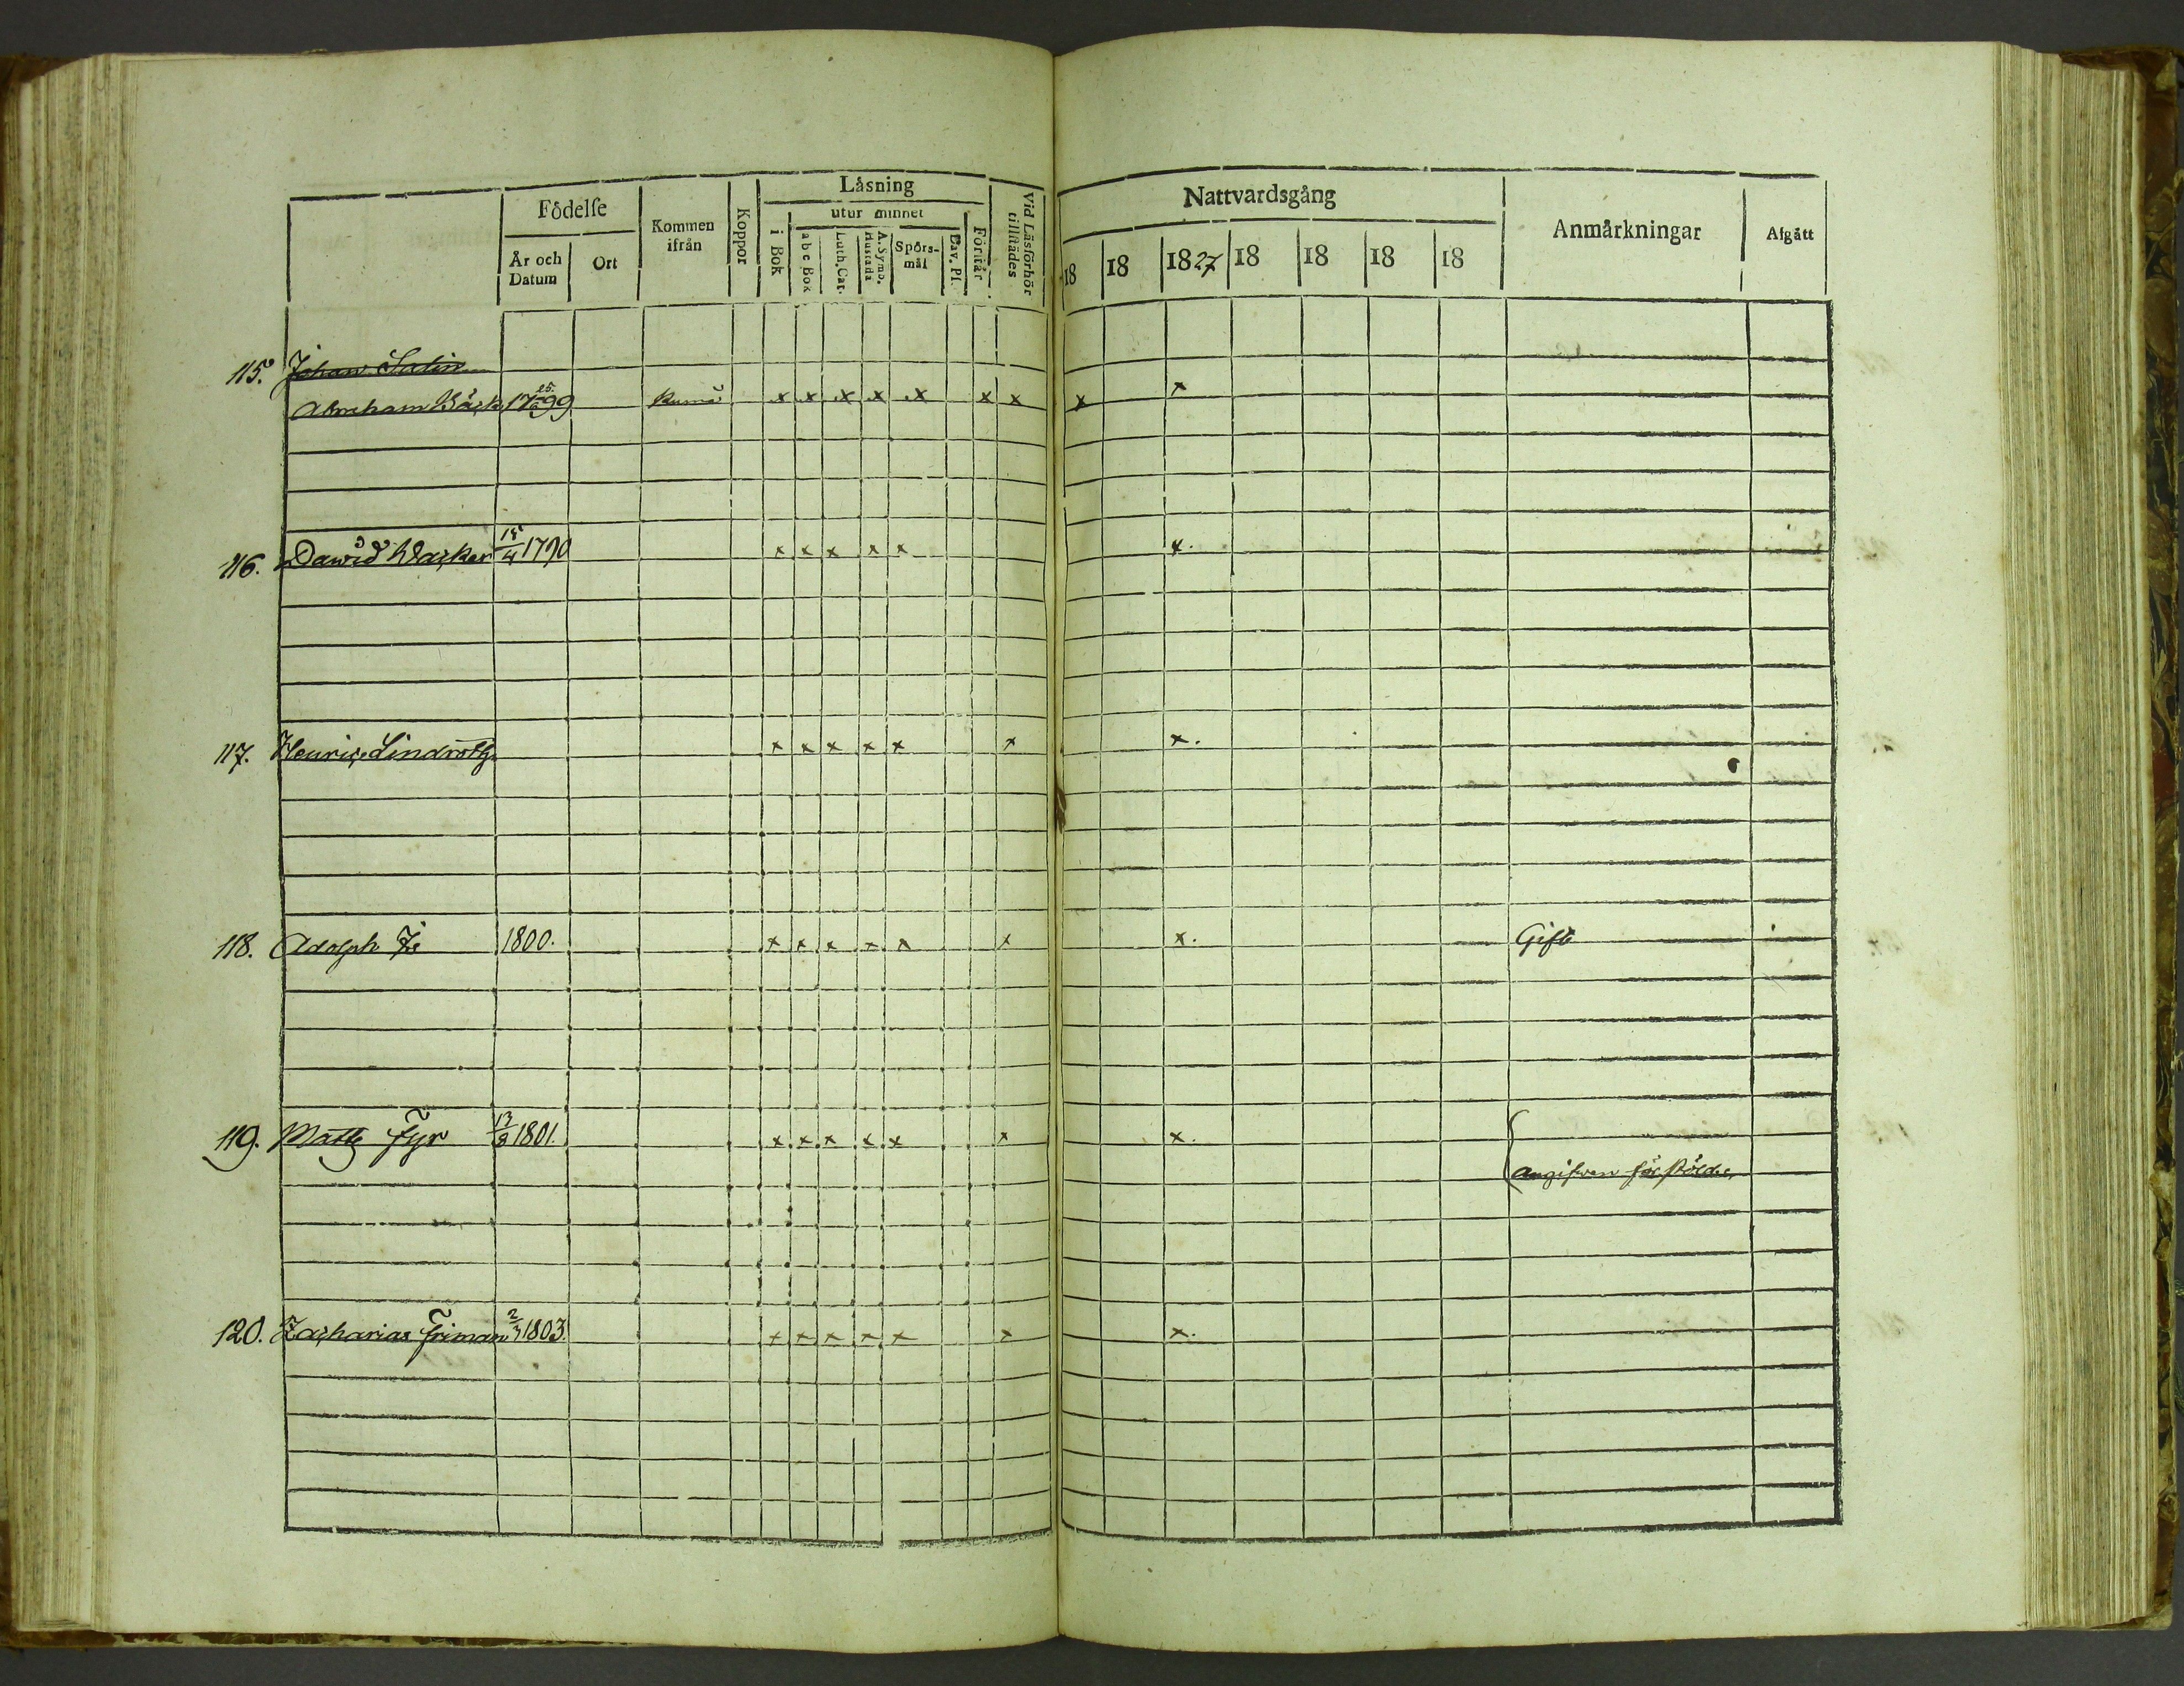 Födelse
År och Datum
Ort
Kommen ifrån
Koppor
Läsning
i Bok
utur minnet
abc Bok
Luth. Cat.
A. Symb. Hustafla
Spörs-mål
Dav. Ps.
Förstår
Vid Läsförhör tillstädes
Nattvardsgång
18 18 1827 18 18 18 18
Anmärkningar
Afgått
115. Johan Salin
Abraham Bäck 1799 Kumå x x x x x x x x x
116. Dawid Wacker 15/4 1790 x x x x x x.
117. Henric Lindroth x x x x x x x.
118. Adolph 1800. x x x x x x x. Gift
119. Matts Fyr 13/9 1801. x x x x x x x.
angifwen för stöld
120. Zacharias Friman 2/3 1803. x x x x x x x.